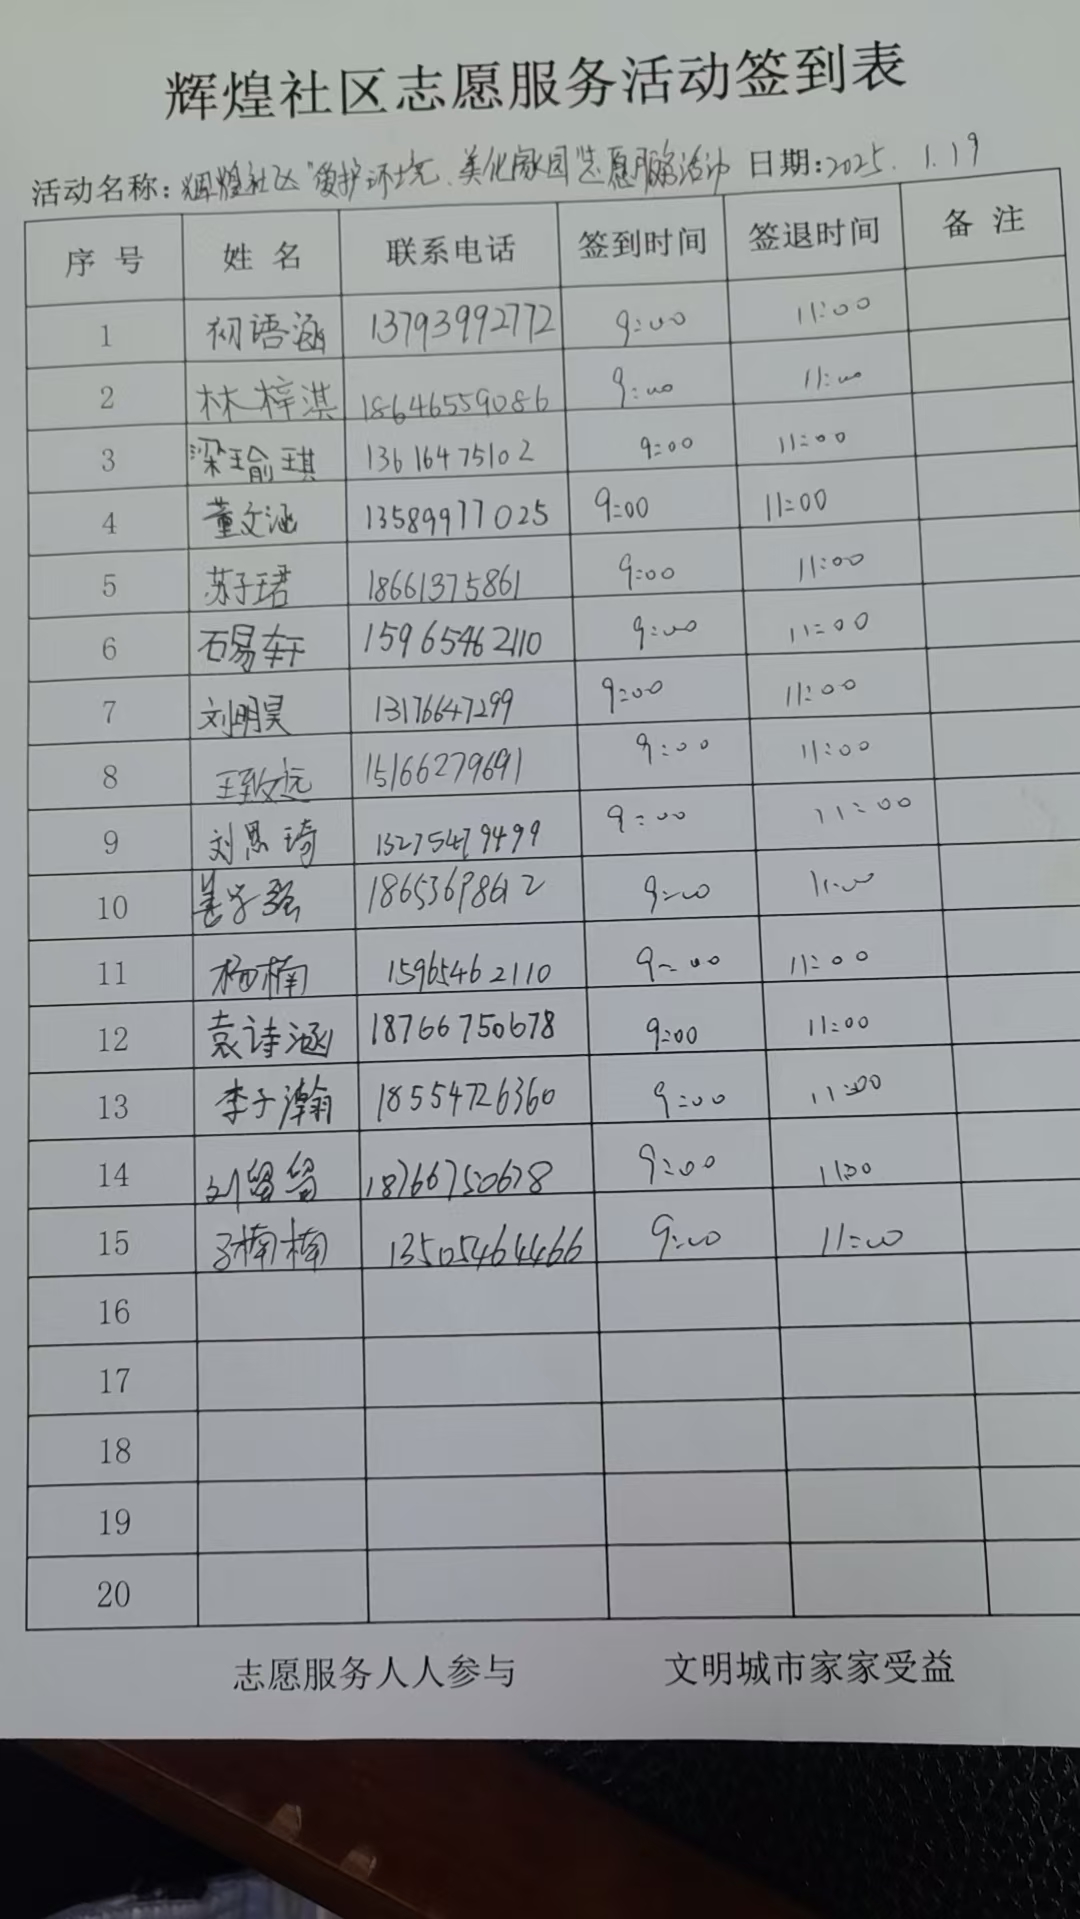 辉煌社区志愿服务活动签到表
活动名称：辉煌社区“爱护环境、美化家园”志愿服务活动 日期：2025.1.19
序号 姓名 联系电话 签到时间 签退时间 备注
1 初语涵 13793992772 9:00 11:00
2 林梓淇 18646559086 9:00 11:00
3 梁瑜琪 13616475102 9:00 11:00
4 董文涵 13589977025 9:00 11:00
5 苏子珺 18661375861 9:00 11:00
6 石易轩 15965462110 9:00 11:00
7 刘明昊 13176647299 9:00 11:00
8 王致远 15166279691 9:00 11:00
9 刘恩琦 13275479499 9:00 11:00
10 姜子强 9:00 11:00
11 杨楠 15965462110 9:00 11:00
12 袁诗涵 18766750678 9:00 11:00
13 李子瀚 18554726360 9:00 11:00
14 刘留留 18766750678 9:00 11:00
15 楠楠 13505464466 9:00 11:00
16
17
18
19
20
志愿服务人人参与 文明城市家家受益